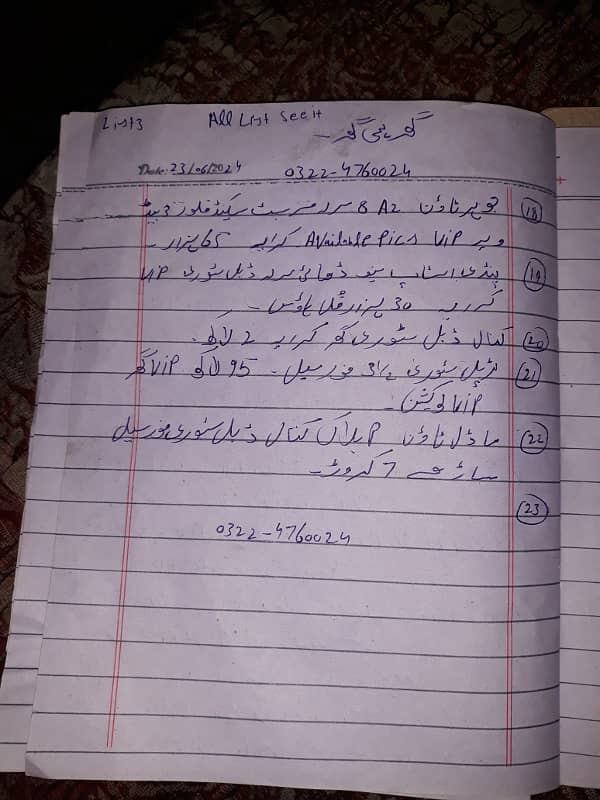 List3
All List See it
گھر ہی گھر -
Date: 23/06/2024
0322-4760024
(18) جوہر ٹاؤن A2 8 مرلہ فرسٹ سیکنڈ فلور 3 بیڈ
Available Pics VIP کرایہ 65 ہزار -
(19) پنڈی اسٹاپ نیو ڈھائی مرلہ ڈبل سٹوری VIP
کرایہ 30 ہزار فل ہاؤس -
(20) کنال ڈبل سٹوری گھر کرایہ 2 لاکھ -
(21) ٹرپل سٹوری 3½ فور سیل - 95 لاکھ VIP گھر
VIP لوکیشن -
(22) ماڈل ٹاؤن P بلاک کنال ڈبل سٹوری فور سیل
ساڑھے 7 کروڑ -
(23)
0322-4760024